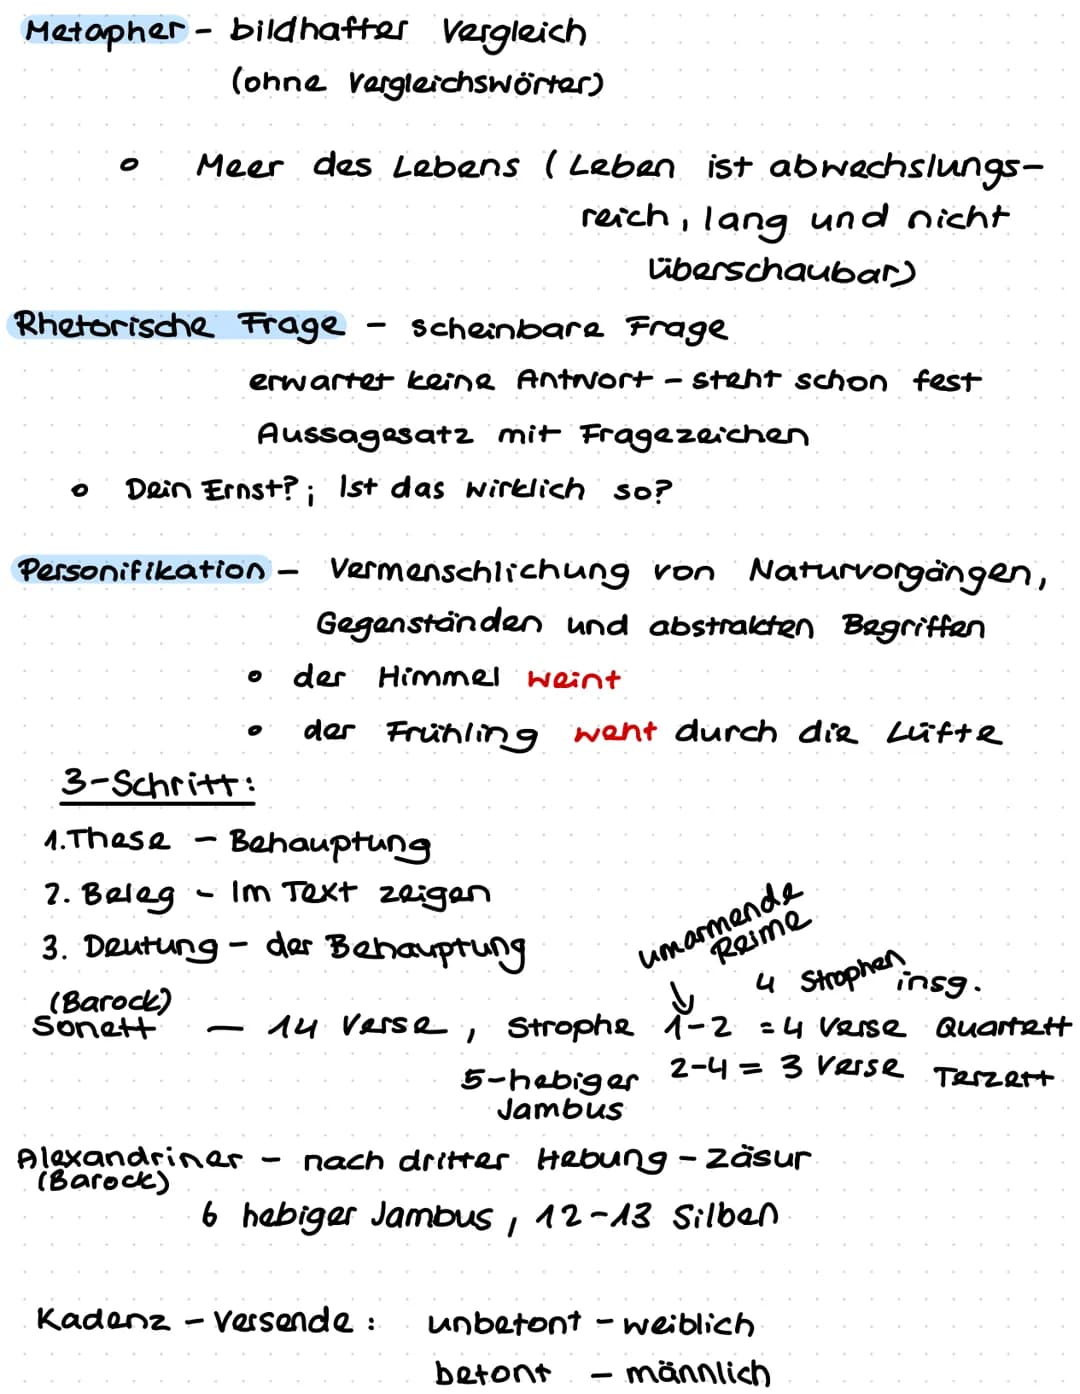 Metapher - bildhafter Vergleich
(ohne Vergleichswörter)
o Meer des Lebens (Leben ist abwechslungs-
reich, lang und nicht
überschaubar)
Rhetorische Frage - scheinbare Frage
erwartet keine Antwort - steht schon fest
Aussagesatz mit Fragezeichen
o Dein Ernst?; Ist das wirklich so?
Personifikation - Vermenschlichung von Naturvorgängen,
Gegenständen und abstrakten Begriffen
o der Himmel weint
o der Frühling weht durch die Lüfte
3-Schritt:
1. These - Behauptung
2. Beleg - Im Text zeigen
3. Deutung - der Behauptung
umarmende
Reime
4 Strophen insg.
(Barock)
Sonett - 14 Verse, Strophe 1-2 = 4 Verse Quartett
5-hebiger 2-4 = 3 Verse Terzett
Jambus
Alexandriner - nach dritter Hebung - zäsur
(Barock)
6 hebiger Jambus, 12-13 Silben
Kadenz - Versende: unbetont - weiblich
betont - männlich